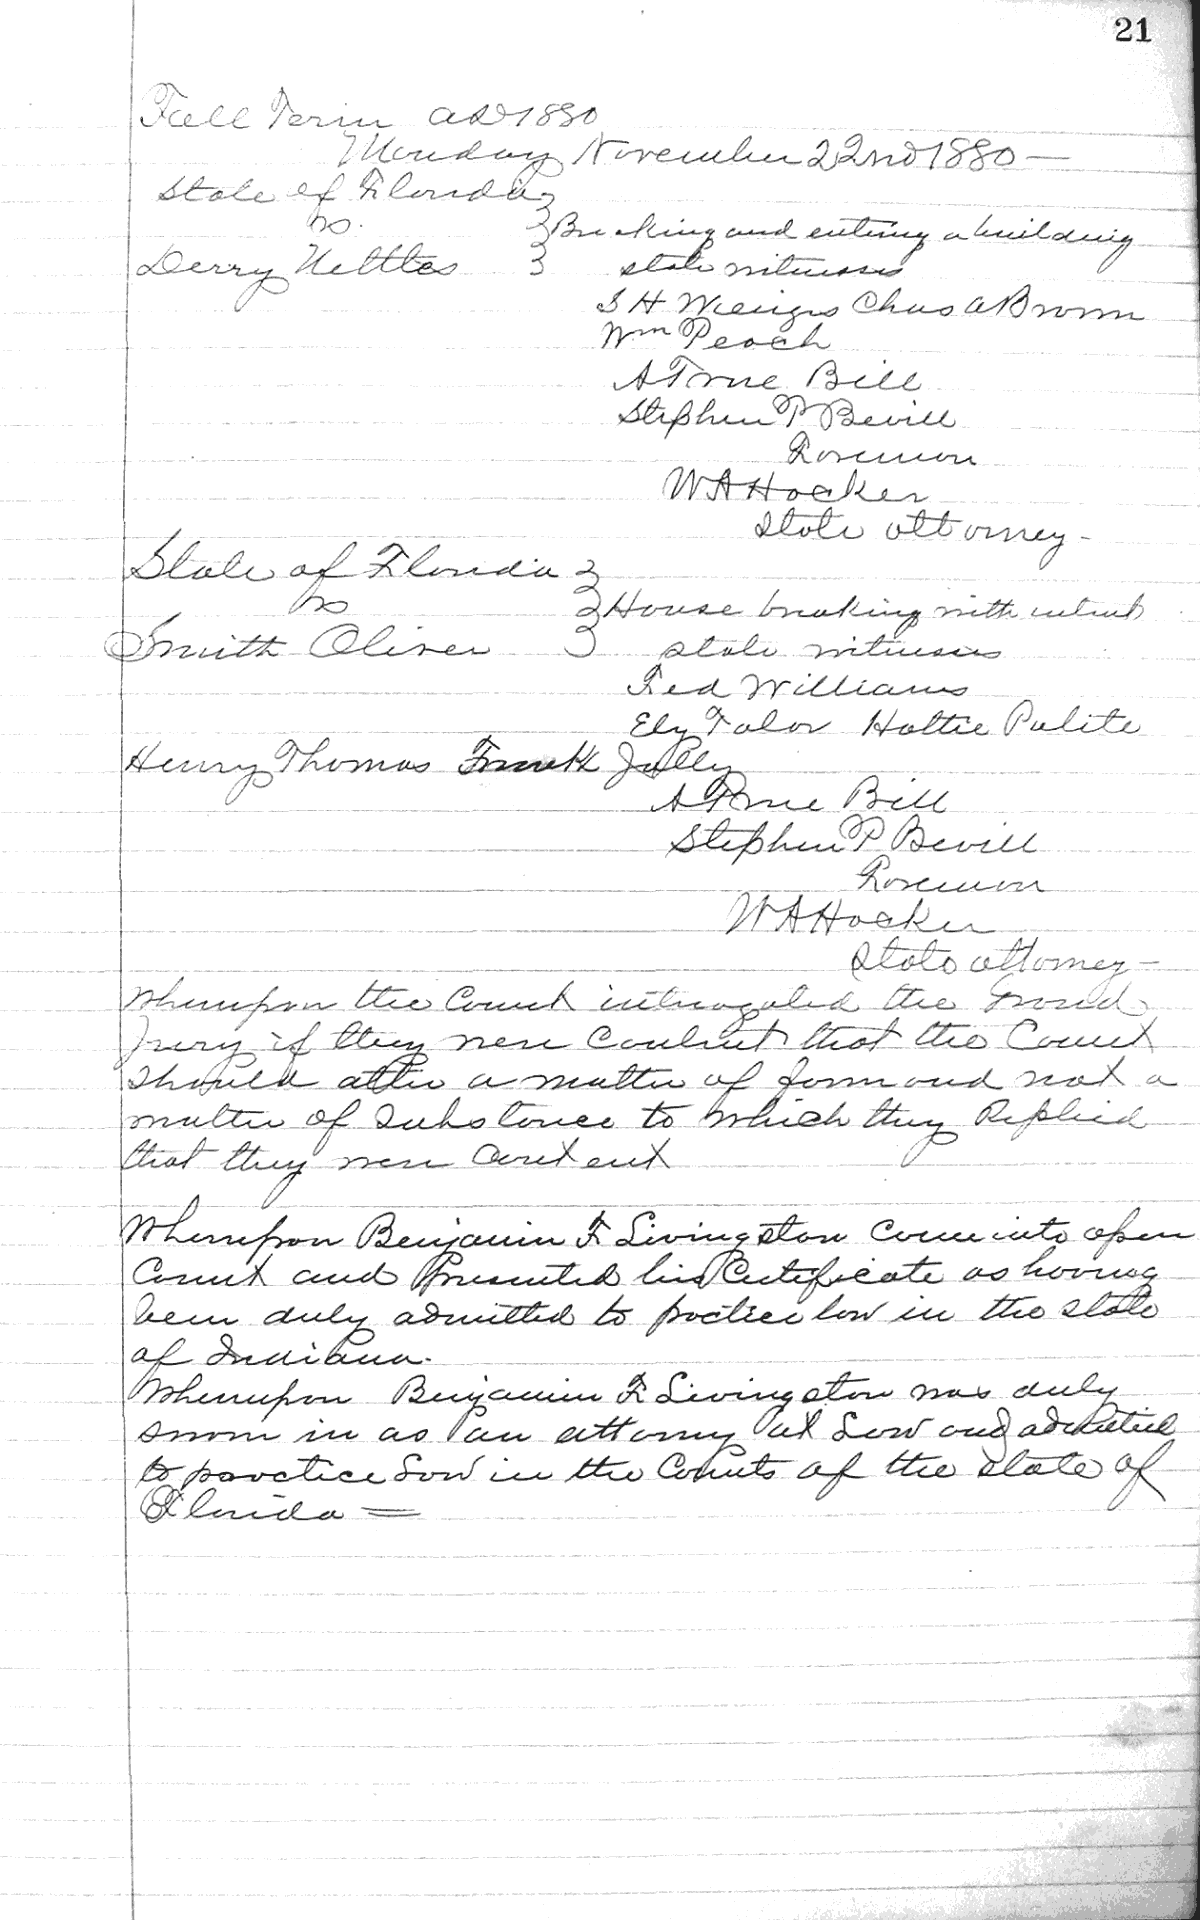 21
Fall Term AD 1880
Monday November 22nd 1880 —
State of Florida
vs.
Breaking and entering a building
Derry Nettles
state witnesses
S H Wienges Chas A Brown
Wm Peach
A True Bill
Stephen P Bevill
Foreman
W A Hocker
State attorney -
State of Florida
vs
House breaking with intent
Smith Oliver
state witnesses
Fed Williams
Ely Talor Hattie Polite
Henry Thomas Frank Jolly
A True Bill
Stephen P Bevill
Foreman
W A Hocker
State attorney —
Whereupon the Court interrogated the Grand
Jury if they were Content that the Court
should alter a matter of form and not a
matter of Substance to which they Replied
that they were Content
Whereupon Benjamin F Livingston Come into open
Court and Presented his Certificate as having
been duly admitted to practice law in the state
of Indiana.
Whereupon Benjamin F Livingston was duly
sworn in as an attorney at Law and admitted
to practice Law in the Courts of the state of
Florida =